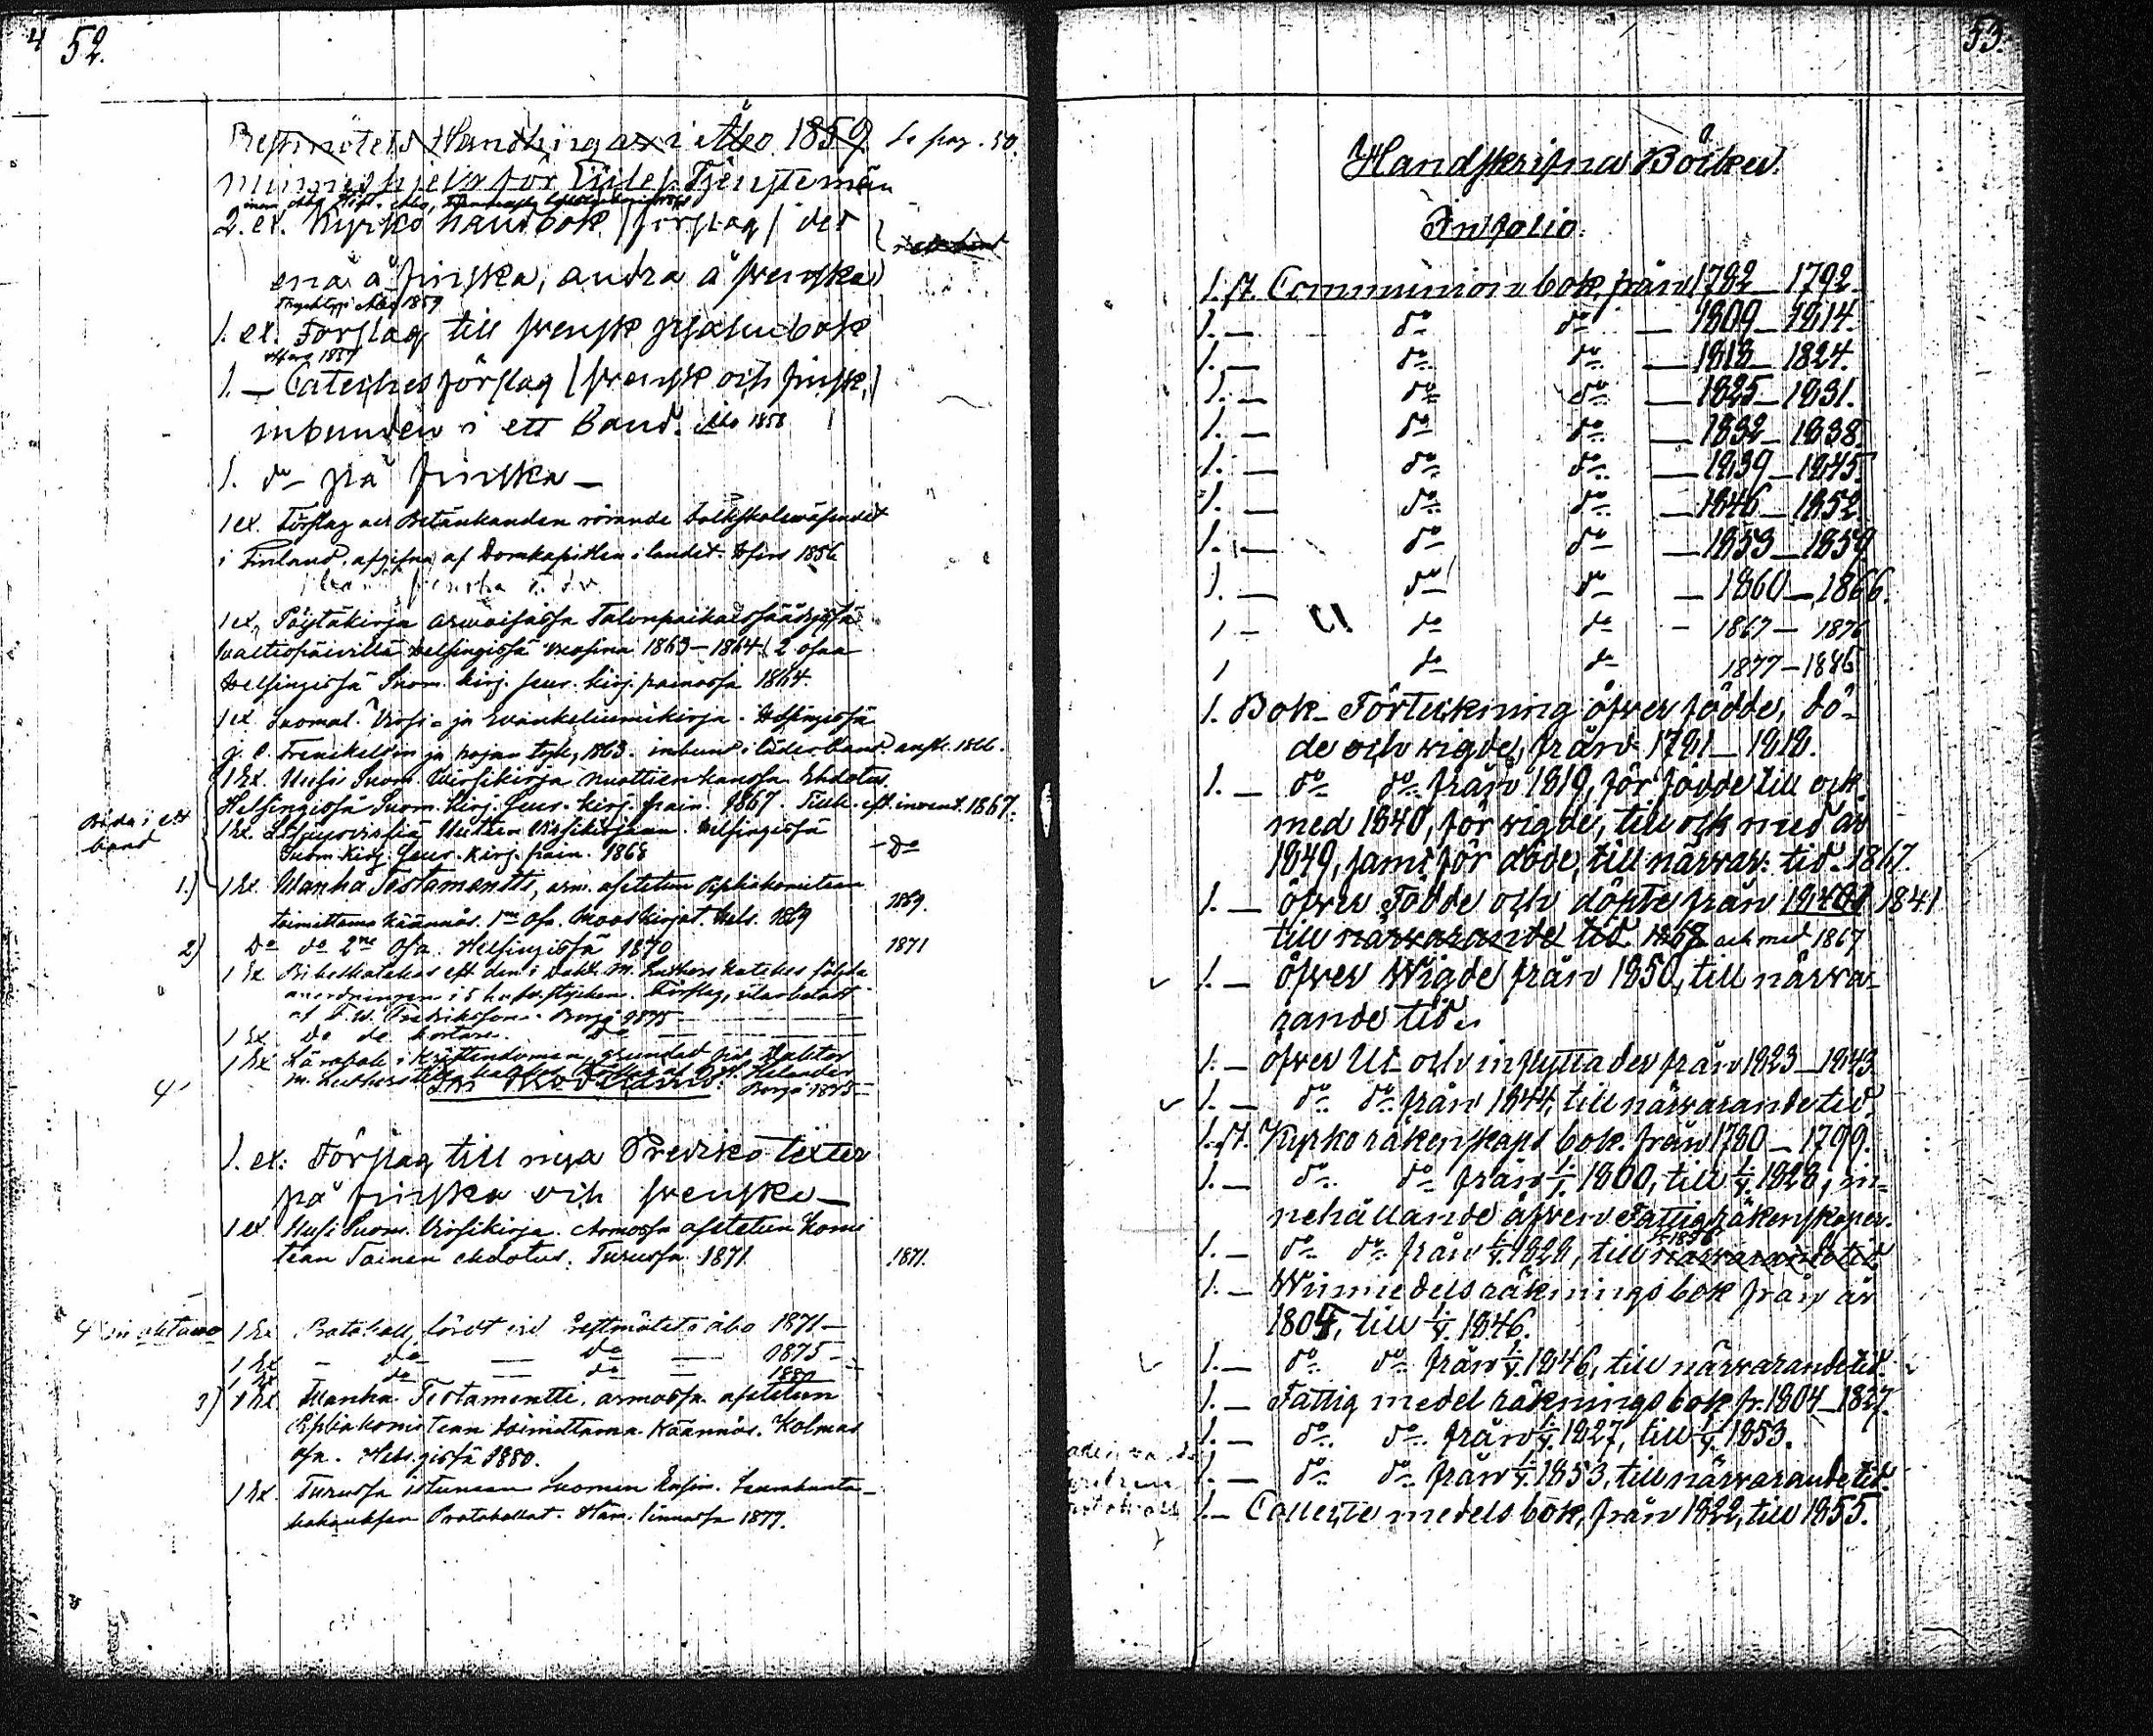 52.
Prestmötets Handlingar i Åbo 1859. Se pag. 50.
Minneshjelp för Eccles. Tjenstemän
2. ex. Kyrko handbok (förslag) det
ena å finska, andra å svenska
Åbo 1859
1. ex. Förslag till svensk psalmbok
1. — Cateches förslag (svensk och finsk)
inbunden i ett Band. Åbo 1858
1. do på finska —
1 ex. Förslag och Betänkanden rörande Folkskolewäsendet
i Finland, afgifna af Domkapitlen i landet. Hfors 1856
1 ex. Pöytäkirja Talonpoikaissäädyssä
waltiopäivillä Helsingissä vuosina 1863–1864 (2 osaa
Helsingissä Suom. kirj. seur. kirj. painossa 1864.
1 ex. Suomal. Virsi- ja Evankeliumikirja. Helsingissä
J. C. Frenckellin ja pojan tyk., 1863. inbund. i läderband ansk. 1866.
1 Ex. Uusi Suom. Virsikirja nuottien kanssa. Ehdotus.
Helsingissä Suom. Kirj. Seur. kirj. pain. 1867. Tillk. eft. invent. 1867.
Båda i ett
band
1 Ex. Uuteen Virsikirjaan. Helsingissä
Suom. Kirj. Seur. Kirj. pain. 1868 — Do
1.) 1 Ex. Wanha Testamentti, arm. asetetun Pipliakomitean
toimittama käännös. 1nen Osa. Mooseskirjat. Hels. 1869 1869.
2) Do do 2nen Osa. Helsingissä 1870 1871
1 Ex. Bibelkatekes eft. den i Dokt. M. Luthers katekes följda
anordningen i 5 hufv.stycken. Förslag, utarbetadt
af F. W. Fredriksson. Borgå 1875
1 Ex. Do do kortare. Do
1 Ex. Lärobok i Kristendomen, grundad på Doktor
M. Luthers lilla katekes Helander
Borgå 1875
4
1. ex. Förslag till nya Prediko Texter
på finska och svenska —
1 ex. Uusi Suom. Virsikirja. Armossa asetetun Komi
tean Toinen ehdotus. Turussa. 1871. 1871.
1 Ex. Protokoll, fördt vid Prestmötet i Åbo 1871 —
1 Ex. — do — do — 1875 —
1 Ex. do — do — 1880
3) 1 Ex. Wanha Testamentti, armossa asetetun
Piplia komitean toimittama Käännös. Kolmas
osa. Helsingissä 1880.
1 Ex. Turussa istunean Suomen Ensim.
Protokollat. Hämeenlinnassa 1877.
53.
Handskrifna Böcker.
In folio.
1. st. Communion bok, från 1782 — 1792.
1. — do do — 1809 — 1814.
1. — do do — 1818 — 1824.
1. — do do — 1825 — 1831.
1. — do do — 1832 — 1838.
1. — do do — 1839 — 1845.
1. — do do — 1846 — 1852
1. — do do — 1853 — 1859
1. — do do — 1860 — 1866.
1 – do do – 1867 — 1876
1 do do 1877 – 1886
1. Bok Förteckning öfver födde, dö-
de och wigde, från 1781 — 1818.
1. — do do från 1819, för födde till och
med 1840, för wigde, till och med år
1849, samt för döde, till närvar. tid. 1867.
1. — öfver Födde och döpte från 1841
till närvarande tid 1868 och med 1867
1. — öfver Wigde från 1850, till närva-
rande tid.
1. — öfver Ut- och inflyttade från 1823 — 1843.
1. — do do från 1844, till närvarande tid.
1. st. Kyrko räkenskaps bok. från 1780 — 1799.
1. — do do från 1800, till 1828, in-
nehållande äfven Fattig räkenskaper.
1. — do do från 1828, till närvarande tid
1. — Winmedels räknings bok från år
1804, till 1846.
1. — do do från 1846, till närvarande tid.
1. — Fattig medel räknings bok fr. 1804 — 1827.
1. — do do från 1827, till 1853.
1. — do do från 1853, till närvarande tid.
1. — Collecte medels bok, från 1822, till 1855.